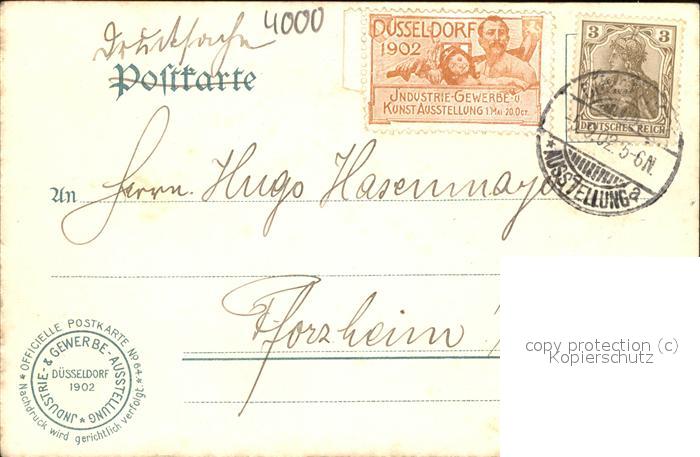 Drucksache
4000
Postkarte
DÜSSELDORF
1902
INDUSTRIE-GEWERBE-U.
KUNST AUSSTELLUNG 1. MAI-20. OCT.
3 3
DEUTSCHES REICH
02. 5-6N.
* AUSSTELLUNG a
An Herrn. Hugo Hasenmayer
Pforzheim
* OFFICIELLE POSTKARTE No 64. *
JNDUSTRIE- & GEWERBE-AUSSTELLUNG *
DÜSSELDORF
1902
Nachdruck wird gerichtlich verfolgt.
copy protection (c)
Kopierschutz